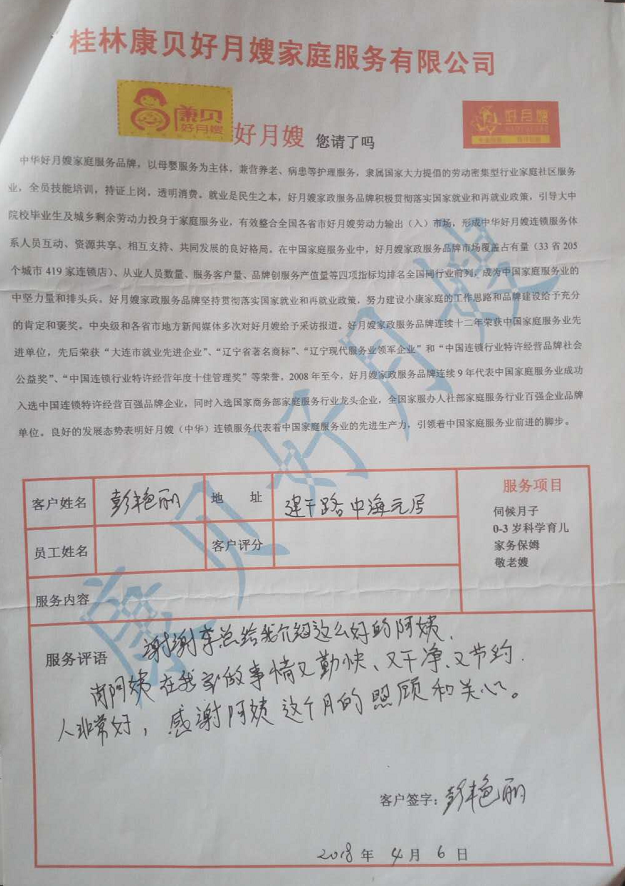 桂林康贝好月嫂家庭服务有限公司
康贝
好月嫂
好月嫂 您请了吗
好月嫂
中华好月嫂家庭服务品牌。以母婴服务为主体，兼营养老、病患等护理服务，隶属国家大力提倡的劳动密集型行业家庭社区服务
业，全员技能培训，持证上岗，透明消费。就业是民生之本，好月嫂家政服务品牌和极贯彻落实国家就业和再就业政策，引导大中
院校毕业生及城乡剩余劳动力投身于家庭服务业，有效整合全国各省市好月嫂劳动力输出（入）市场，形成中华好月嫂连锁服务体
系人员互动、资源共享、相互支持、共同发展的良好格局。在中国家庭服务业中，好月嫂家政服务品牌市场覆盖占有量（33 省 205
个城市 419 家连锁店）、从业人员数量、服务客户量、品牌创服务产值量等四项指标均排名全国同行业前列，成为中国家庭服务业的
中坚力量和排头兵。好月嫂家政服务品牌坚持贯彻落实国家就业和再就业政策，努力建设小康家庭的工作思路和品牌建设给予充分
的肯定和褒奖。中央级和各省市地方新闻媒体多次对好月嫂给予采访报道。好月嫂家政服务品牌连续十二年荣获中国家庭服务业先
进单位，先后荣获“大连市就业先进企业”、“辽宁省著名商标”、“辽宁现代服务业领军企业”和“中国连锁行业特许经营品牌社会
公益奖”、“中国连锁行业特许经营年度十佳管理奖”等荣誉。2008 年至今，好月嫂家政服务品牌连续 9 年代表中国家庭服务业成功
入选中国连锁特许经营百强品牌企业，同时入选国家商务部家庭服务行业龙头企业，全国家服办人社部家庭服务行业百强企业品牌
单位。良好的发展态势表明好月嫂（中华）连锁服务代表着中国家庭服务业的先进生产力，引领着中国家庭服务业前进的脚步。
康贝好月嫂
客户姓名 彭艳丽 地 址 建干路中海元居
服务项目
伺候月子
0-3 岁科学育儿
家务保姆
敬老嫂
员工姓名 客户评分
服务内容
服务评语 谢谢李总给我介绍这么好的阿姨，
阿姨在我家做事情又勤快、又干净、又节约.
人非常好，感谢阿姨这个月的照顾和关心。
客户签字：彭艳丽
2018 年 4 月 6 日